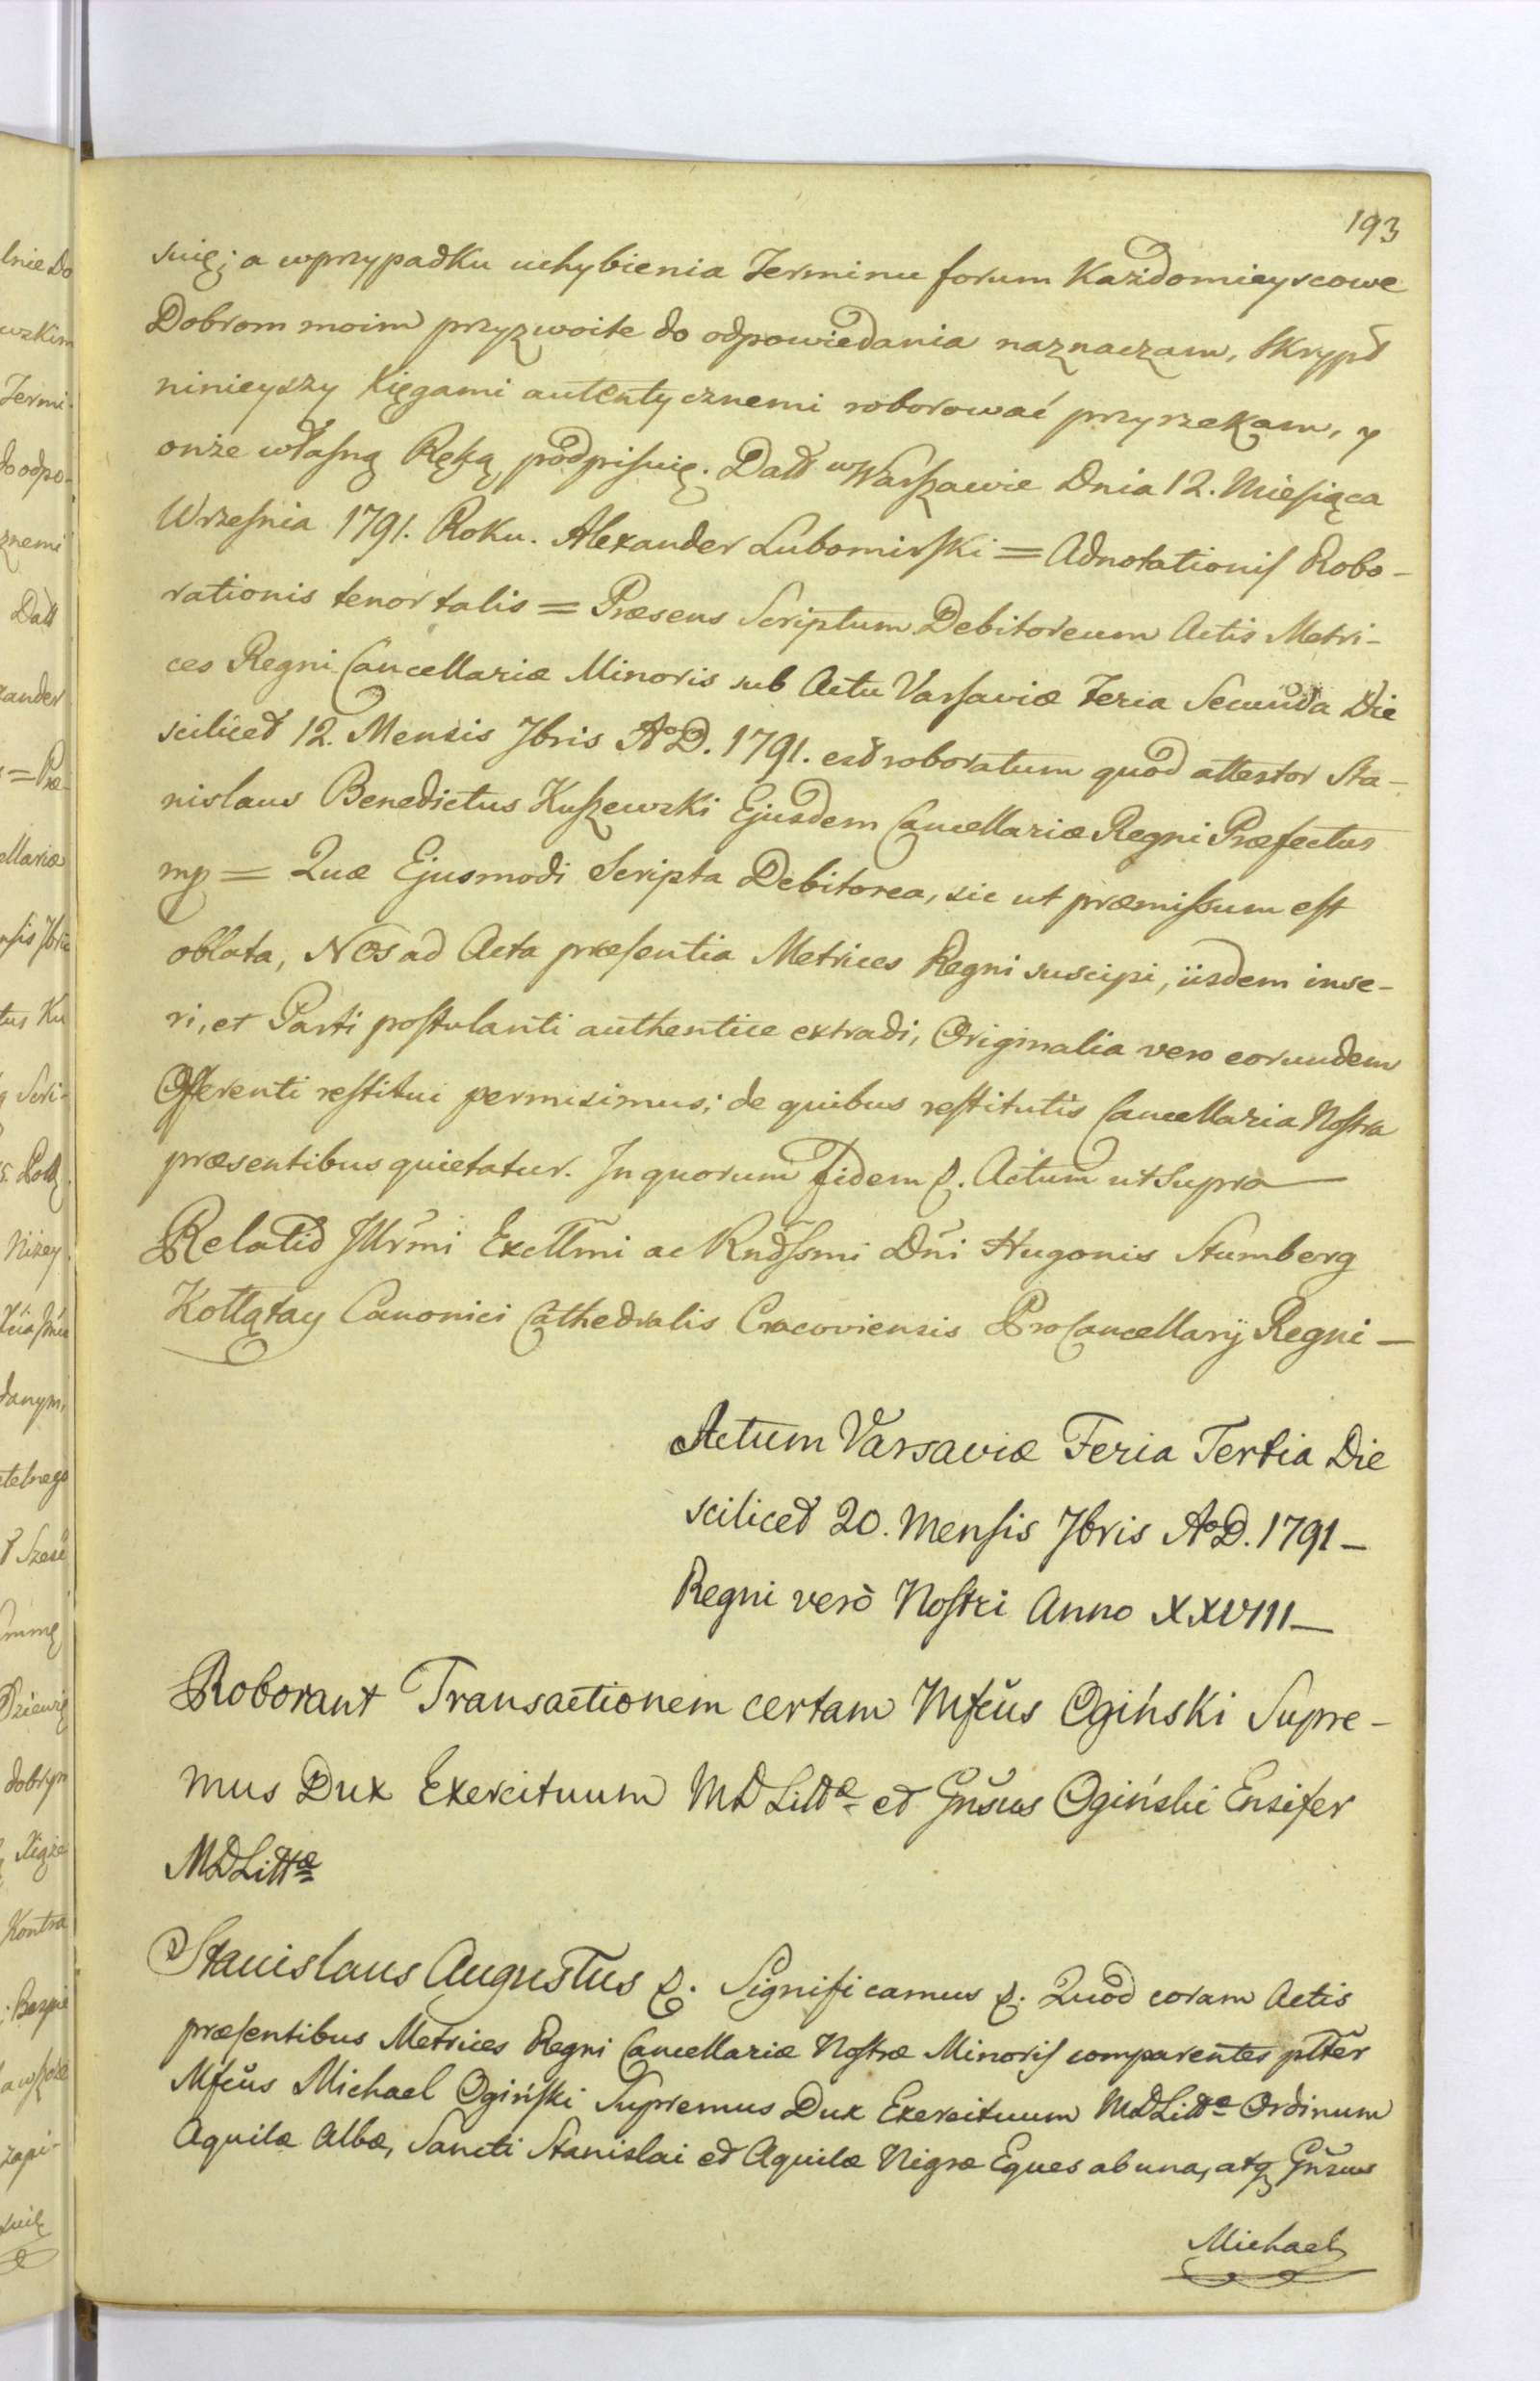 193
suię; a wprzypadku uchybienia Terminu forum Każdomieyscowe
Dobrom moim przyzwoite do odpowiedania naznaczam, Skrypt
ninieyszy Xięgami autentycznemi roborować przyrzekam, y
onże własną Ręką podpisuię. Datt w Warszawie Dnia 12. Miesiąca
Września 1791. Roku. Alexander Lubomirski = Adnotationis Robo-
rationis tenor talis = Præsens Scriptum Debitoreum Actis Metri-
ces Regni Cancellariæ Minoris sub Actu Varsaviæ Feria Secunda Die
scilicet 12. Mensis 7bris A°D. 1791. est roboratum quod attestor Sta-
nislaus Benedictus Kuszewski Ejusdem Cancellariæ Regni Præfectus
mp = Quæ Ejusmodi Scripta Debitorea, sic ut præmissum est
oblata, Nos ad Acta præsentia Metrices Regni suscipi, iisdem inse-
ri, et Parti postulanti authentice extradi, Originalia vero eorundem
Offerenti restitui permisimus; de quibus restitutis Cancellaria Nostra
præsentibus quietatur. In quorum fidem &. Actum ut Supra
Relatio Illrmi Excllmi ac Rndssmi Dni Hugonis Stumberg
Kołłątay Canonici Cathedralis Cracoviensis ProCancellarÿ Regni —
Actum Varsaviæ Feria Tertia Die
scilicet 20. Mensis 7bris A°D. 1791 —
Regni verò Nostri Anno XXVIII —
Roborant Transactionem certam Mfcus Ogiński Supre-
mus Dux Exercituum MDLittæ et Gnsus Ogiński Ensifer
MDLittæ
Stanislaus Augustus &. Significamus &. Quod coram Actis
præsentibus Metrices Regni Cancellariæ Nostræ Minoris comparentes pltter
Mfcus Michael Ogiński Supremus Dux Exercituum MDLittæ Ordinum
Aquilæ Albæ, Sancti Stanislai et Aquilæ Nigræ Eques ab una, atq Gnsus
Michael